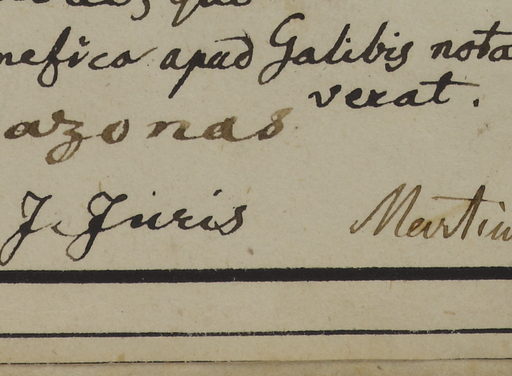 nefica apud Galibis nota
verat.
azonas
J. Juris Martiu